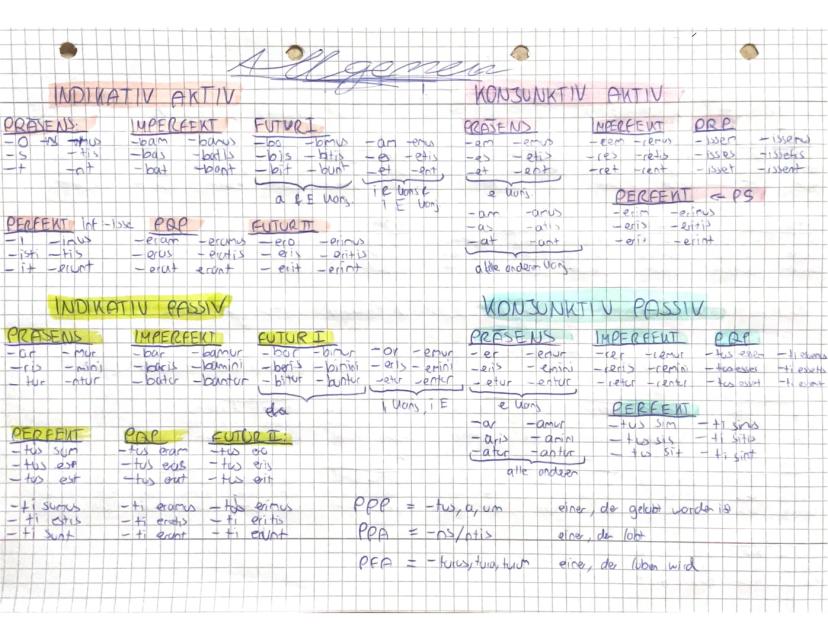 Allgemein
INDIKATIV AKTIV
PRÄSENS:
-O -mus
-s -tis
-t -nt
IMPERFEKT
-bam -bamus
-bas -batis
-bat -bant
FUTUR I
-bo -bimus
-bis -bitis
-bit -bunt
a & E Konj.
-am -emus
-es -etis
-et -ent
KONJUNKTIV AKTIV
PRÄSENS
-em -emus
-es -etis
-et -ent
e Konj
-am -amus
-as -atis
-at -ant
alle anderen Konj.
IMPERFEKT
-rem -remus
-res -retis
-ret -rent
PQP
-issem -issemus
-isses -issetis
-isset -issent
PERFEKT ← PS
-erim -erimus
-eris -eritis
-erit -erint
PERFEKT Inf -isse
-i -imus
-isti -tis
-it -erunt
PQP
-eram -eramus
-eras -eratis
-erat -erant
FUTUR II
-ero -erimus
-eris -eritis
-erit -erint
INDIKATIV PASSIV
PRÄSENS
-or -mur
-ris -mini
-tur -ntur
IMPERFEKT
-bar -bamur
-baris -bamini
-batur -bantur
FUTUR I
-bor -bimur
-beris -bimini
-bitur -buntur
-ar -emur
-eris -emini
-etur -entur
i Konj, i E
KONJUNKTIV PASSIV
PRÄSENS
-er -emur
-eris -emini
-etur -entur
e Konj
-ar -amur
-aris -amini
-atur -antur
alle anderen
IMPERFEKT
-rer -remur
-reris -remini
-retur -rentur
PQP
-tus essem -ti essemus
-tus esses -ti essetis
-tus esset -ti essent
PERFEKT
-tus sim -ti simus
-tus sis -ti sitis
-tus sit -ti sint
PERFEKT
-tus sum
-tus es
-tus est
-ti sumus
-ti estis
-ti sunt
PQP
-tus eram
-tus eras
-tus erat
-ti eramus
-ti eratis
-ti erant
FUTUR II:
-tus ero
-tus eris
-tus erit
-ti erimus
-ti eritis
-ti erunt
PPP = -tus, a, um einer, der gelobt worden ist
PPA = -ns/ntis einer, der lobt
PFA = -turus, tura, turum einer, der loben wird